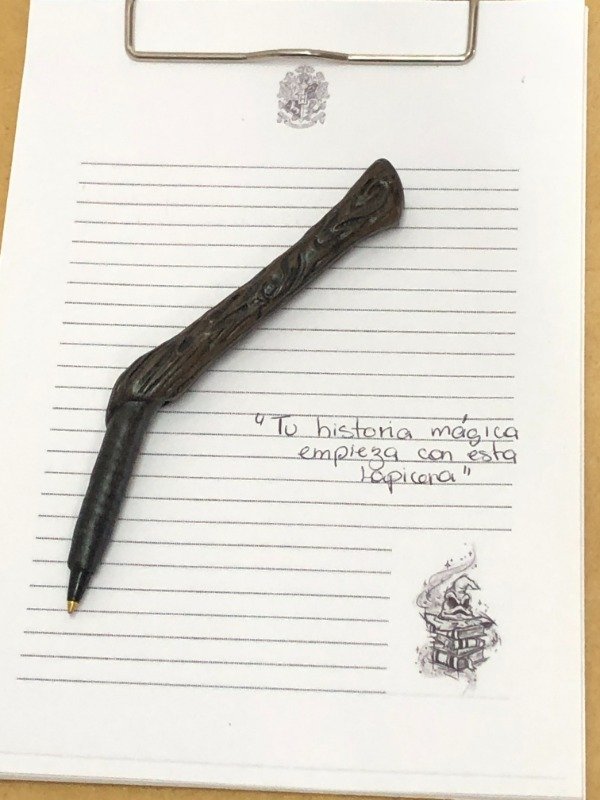 "Tu historia mágica
empieza con esta
Lapicera"